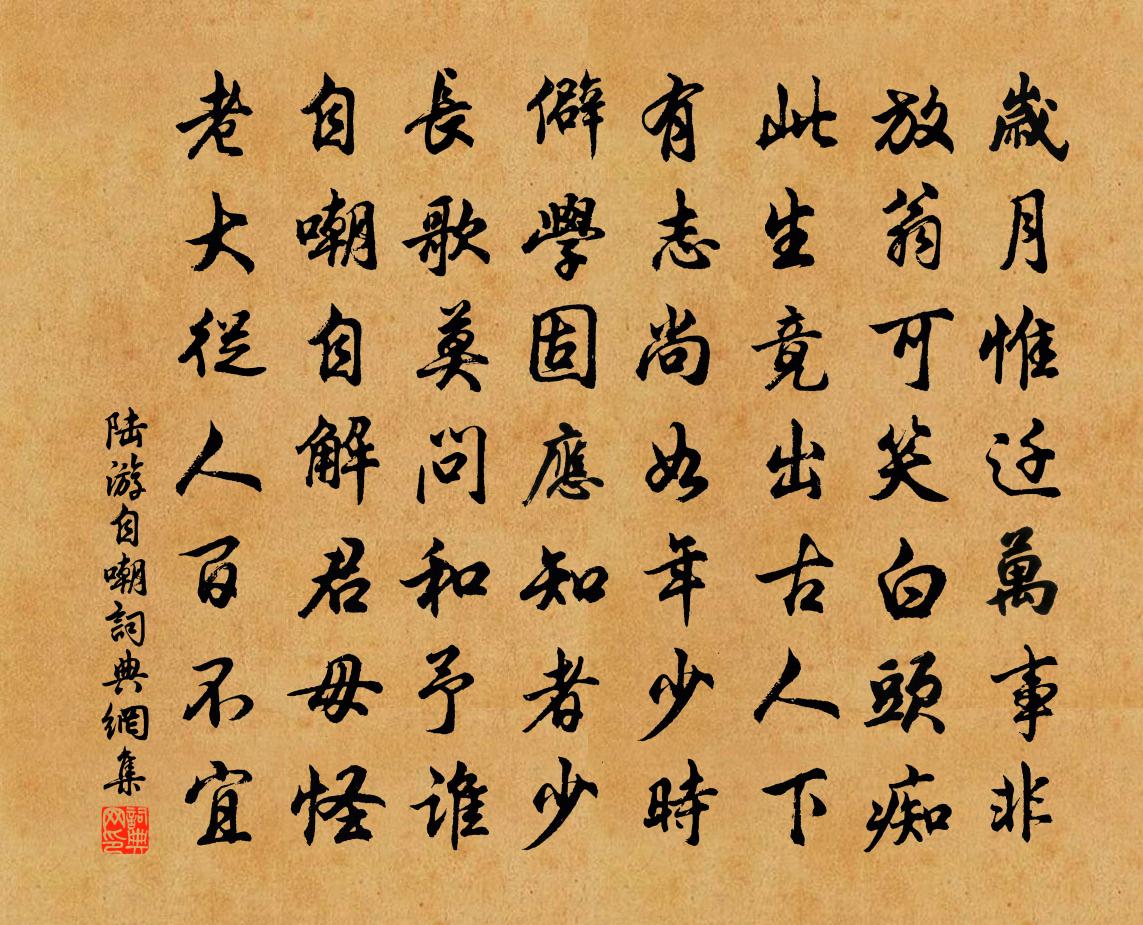 歲月惟迁萬事非
放翁可笑白頭痴
此生竟出古人下
有志尚如年少時
僻學固應知者少
長歌莫問和予誰
自嘲自解君毋怪
老大從人百不宜
陆游自嘲詞典網集
詞典网印